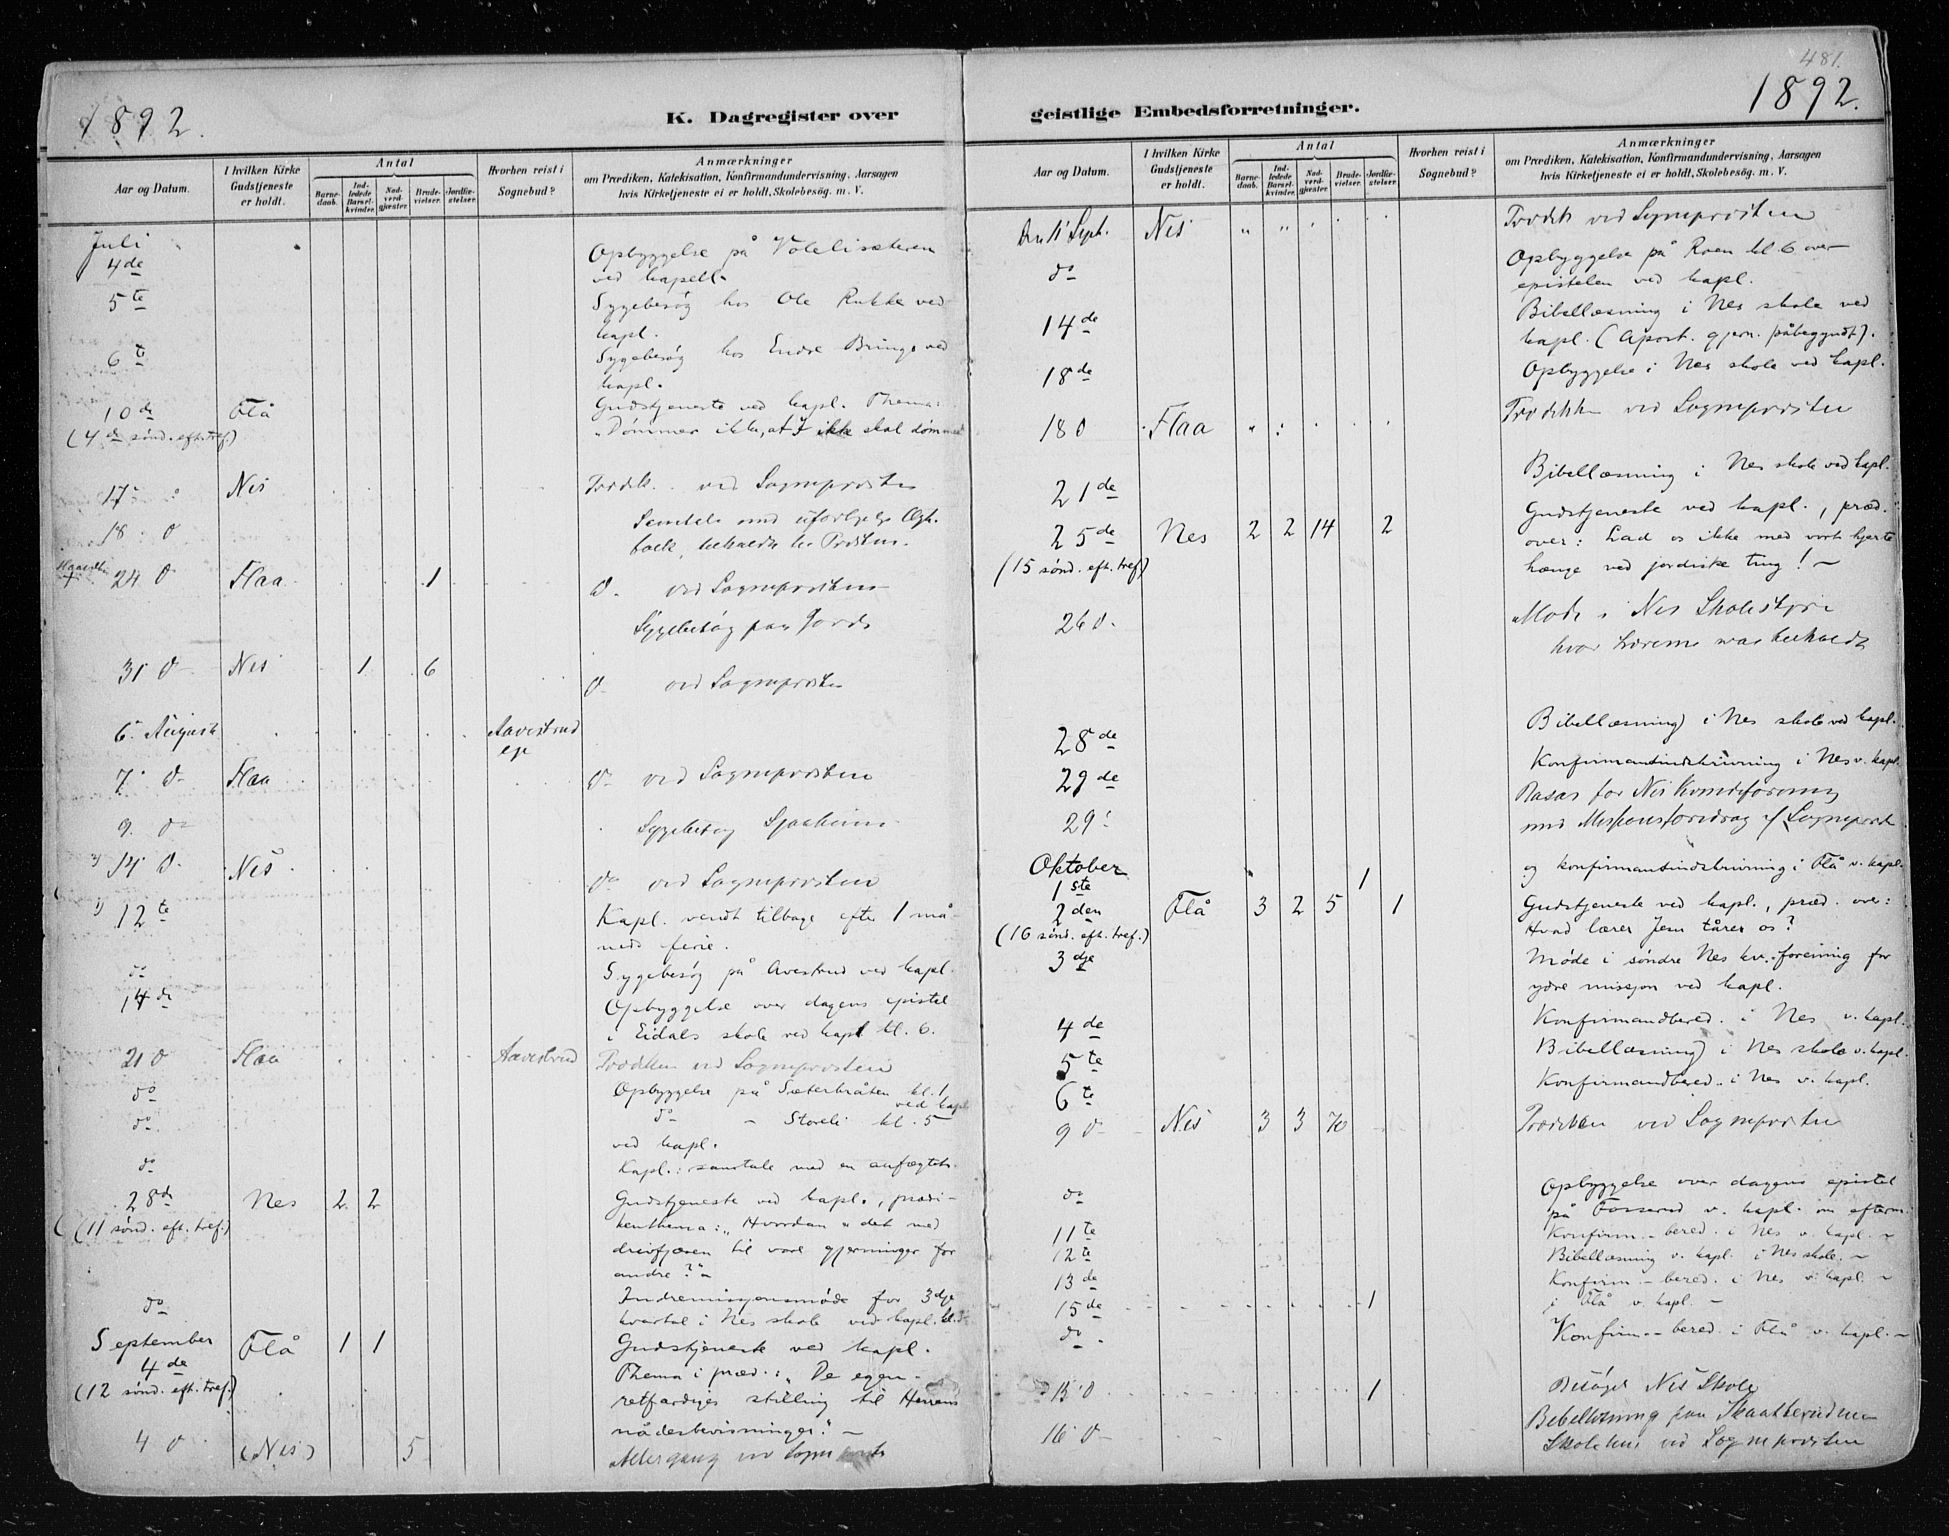 481.
1892.
K. Dagregister over
geistlige Embedsforretninger.
1892.
Aar og Datum.
I hvilken Kirke Gudstjeneste er holdt.
Antal
Barnedaab.
Indledede Barselkvinder.
Nadverdgjæster.
Brudevielser.
Jordfæstelser.
Hvorhen reist i Sognebud?
Anmærkninger
om Prædiken, Katekisation, Konfirmandundervisning, Aarsagen
hvis Kirketjeneste ei er holdt, Skolebesøg. m. V.
Juli
4de Opbyggelse på Votelisæteren
ved kapell.
5te Sygebesøg hos Ole Rukke ved
kapl.
6te Sygebesøg hos Endre Bringe ved
kapl.
10de Flå Gudstjeneste ved kapl. Thema:
(4de sønd. eft. tref.) "Dømmer ikke, at I ikke skal dømmes
17 Nes Prædik. ved Sogneprosten
18 d Samtale med
hos Prosten.
24 d Flaa 1 d. ved Sogneprosten
Sygebesøg paa
31 d Nes 1 6 d ved Sogneprosten
6. August Aavestrud
eje
7 d Flaa d ved Sogneprosten
9. d Sygebesøg
2) 14 d. Nes do ved Sogneprosten
1) 12te Kapl. vendt tilbage efter 1 må-
neds ferie.
do Sygebesøg på Avestrud ved kapl.
14de Opbyggelse over dagens epistel
i Eidals skole ved kapl kl. 6.
21 d Flaa Aavestrud Prædiken ved Sogneprosten
do Opbyggelse på Sæterbråten kl. 1
ved kapl
do do - Støveli kl. 5
ved kapl.
do Kapl.: samtale med en anfægtet.
28de Nes 2 2 Gudstjeneste ved kapl., prædi-
(11 sønd. eft. tref.) kenthema: "Hvordan er det med
drivfjæren til vore gjerninger for
andre?"
do Indremissjonsmøde for 3dje
kvartal i Nes skole ved kapl. kl.
September Flå 1 1 Gudstjeneste ved kapl.
4de Thema i præd.: "De egen-
(12 sønd. eft. tref.) retfærdiges stilling til Herrens
nådesbevisninger." -
4 d (Nes) 5 Altergang ved Sogneprosten
Aar og Datum.
I hvilken Kirke Gudstjeneste er holdt.
Antal
Barnedaab.
Indledede Barselkvinder.
Nadverdgjæster.
Brudevielser.
Jordfæstelser.
Hvorhen reist i Sognebud?
Anmærkninger
om Prædiken, Katekisation, Konfirmandundervisning, Aarsagen
hvis Kirketjeneste ei er holdt, Skolebesøg. m. V.
Den 11 Sept. Nes " " Prædik ved Sogneprosten
do Opbyggelse på Roen kl. 6 over
epistelen ved kapl.
14de Bibellæsning i Nes skole ved
kapl. (Apost. gjern. påbegyndt).
18de Opbyggelse i Nes skole ved kapl.
18 d Flaa Prædiken ved Sogneprosten
21de Bibellæsning i Nes skole ved kapl.
25de Nes 2 2 14 2 Gudstjeneste ved kapl., præd.
(15 sønd. eft. tref.) over: Lad os ikke med vort hjerte
hænge ved jordiske ting! -
26 d. Møde i Nes Skolestyre
hvor
28de Bibellæsning i Nes skole ved kapl.
29de Konfirmantindskrivning i Nes v. kapl.
29 Basar for Nes Kvindeforening
med Missionsforedrag af Sogneprest
Oktober
1ste 1 og konfirmantindskrivning i Flå v. kapl.
2den Flå 3 2 5 1 Gudstjeneste ved kapl., præd. over:
(16 sønd. eft. tref.) Hvad lærer Jesu tårer os?
3dje Møde i søndre Nes kv.-forening for
ydre missjon ved kapl.
4de Konfirmandbered. i Nes v. kapl.
5te Bibellæsning i Nes skole v. kapl.
6te Konfirmandbered. i Nes v. kapl.
9 d Nes 3 3 70 Prædiken ved Sogneprosten
do Opbyggelse over dagens epistel
på Fosserud v. kapl. om efterm.
11te Konfirm. - bered. i Nes v. kapl. -
12te Bibellæsning v. kapl. i Nes skole. -
13de Konfirm. - bered. i Nes v. kapl. -
15de 1 i Flå v. kapl. -
do Konfirm. - bered. i Flå v. kapl. -
15 d 1 Besøgt Nes Skole
16 d Bibellæsning paa
Skolehus ved Sogneprosten